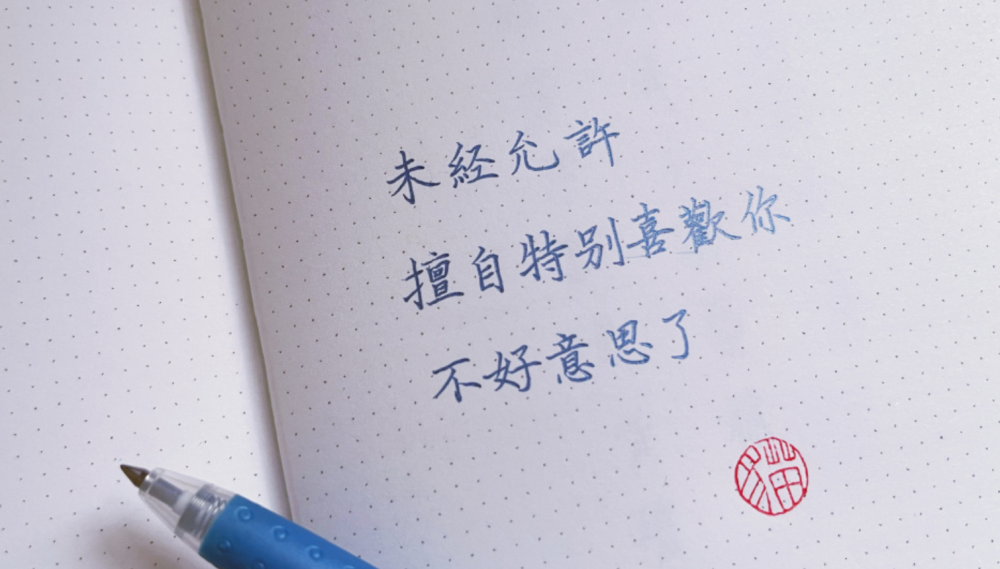 未経允許
擅自特别喜歡你
不好意思了
猫